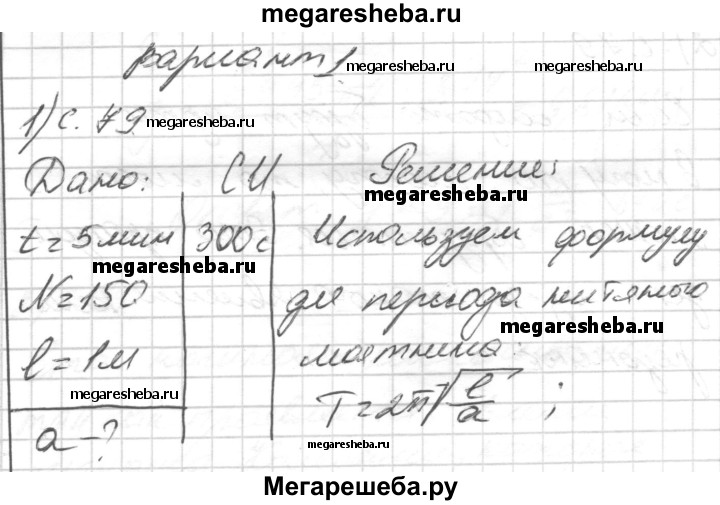 megaresheba.ru
вариант 1 megaresheba.ru megaresheba.ru
1) с. 79 megaresheba.ru
Дано: СИ Решение:
megaresheba.ru
t = 5 мин 300 с Используем формулу
megaresheba.ru
N = 150 для периода нитяного
megaresheba.ru
l = 1 м маятника:
megaresheba.ru T = 2π√(l/a) ;
a - ?
megaresheba.ru
Мегарешеба.ру